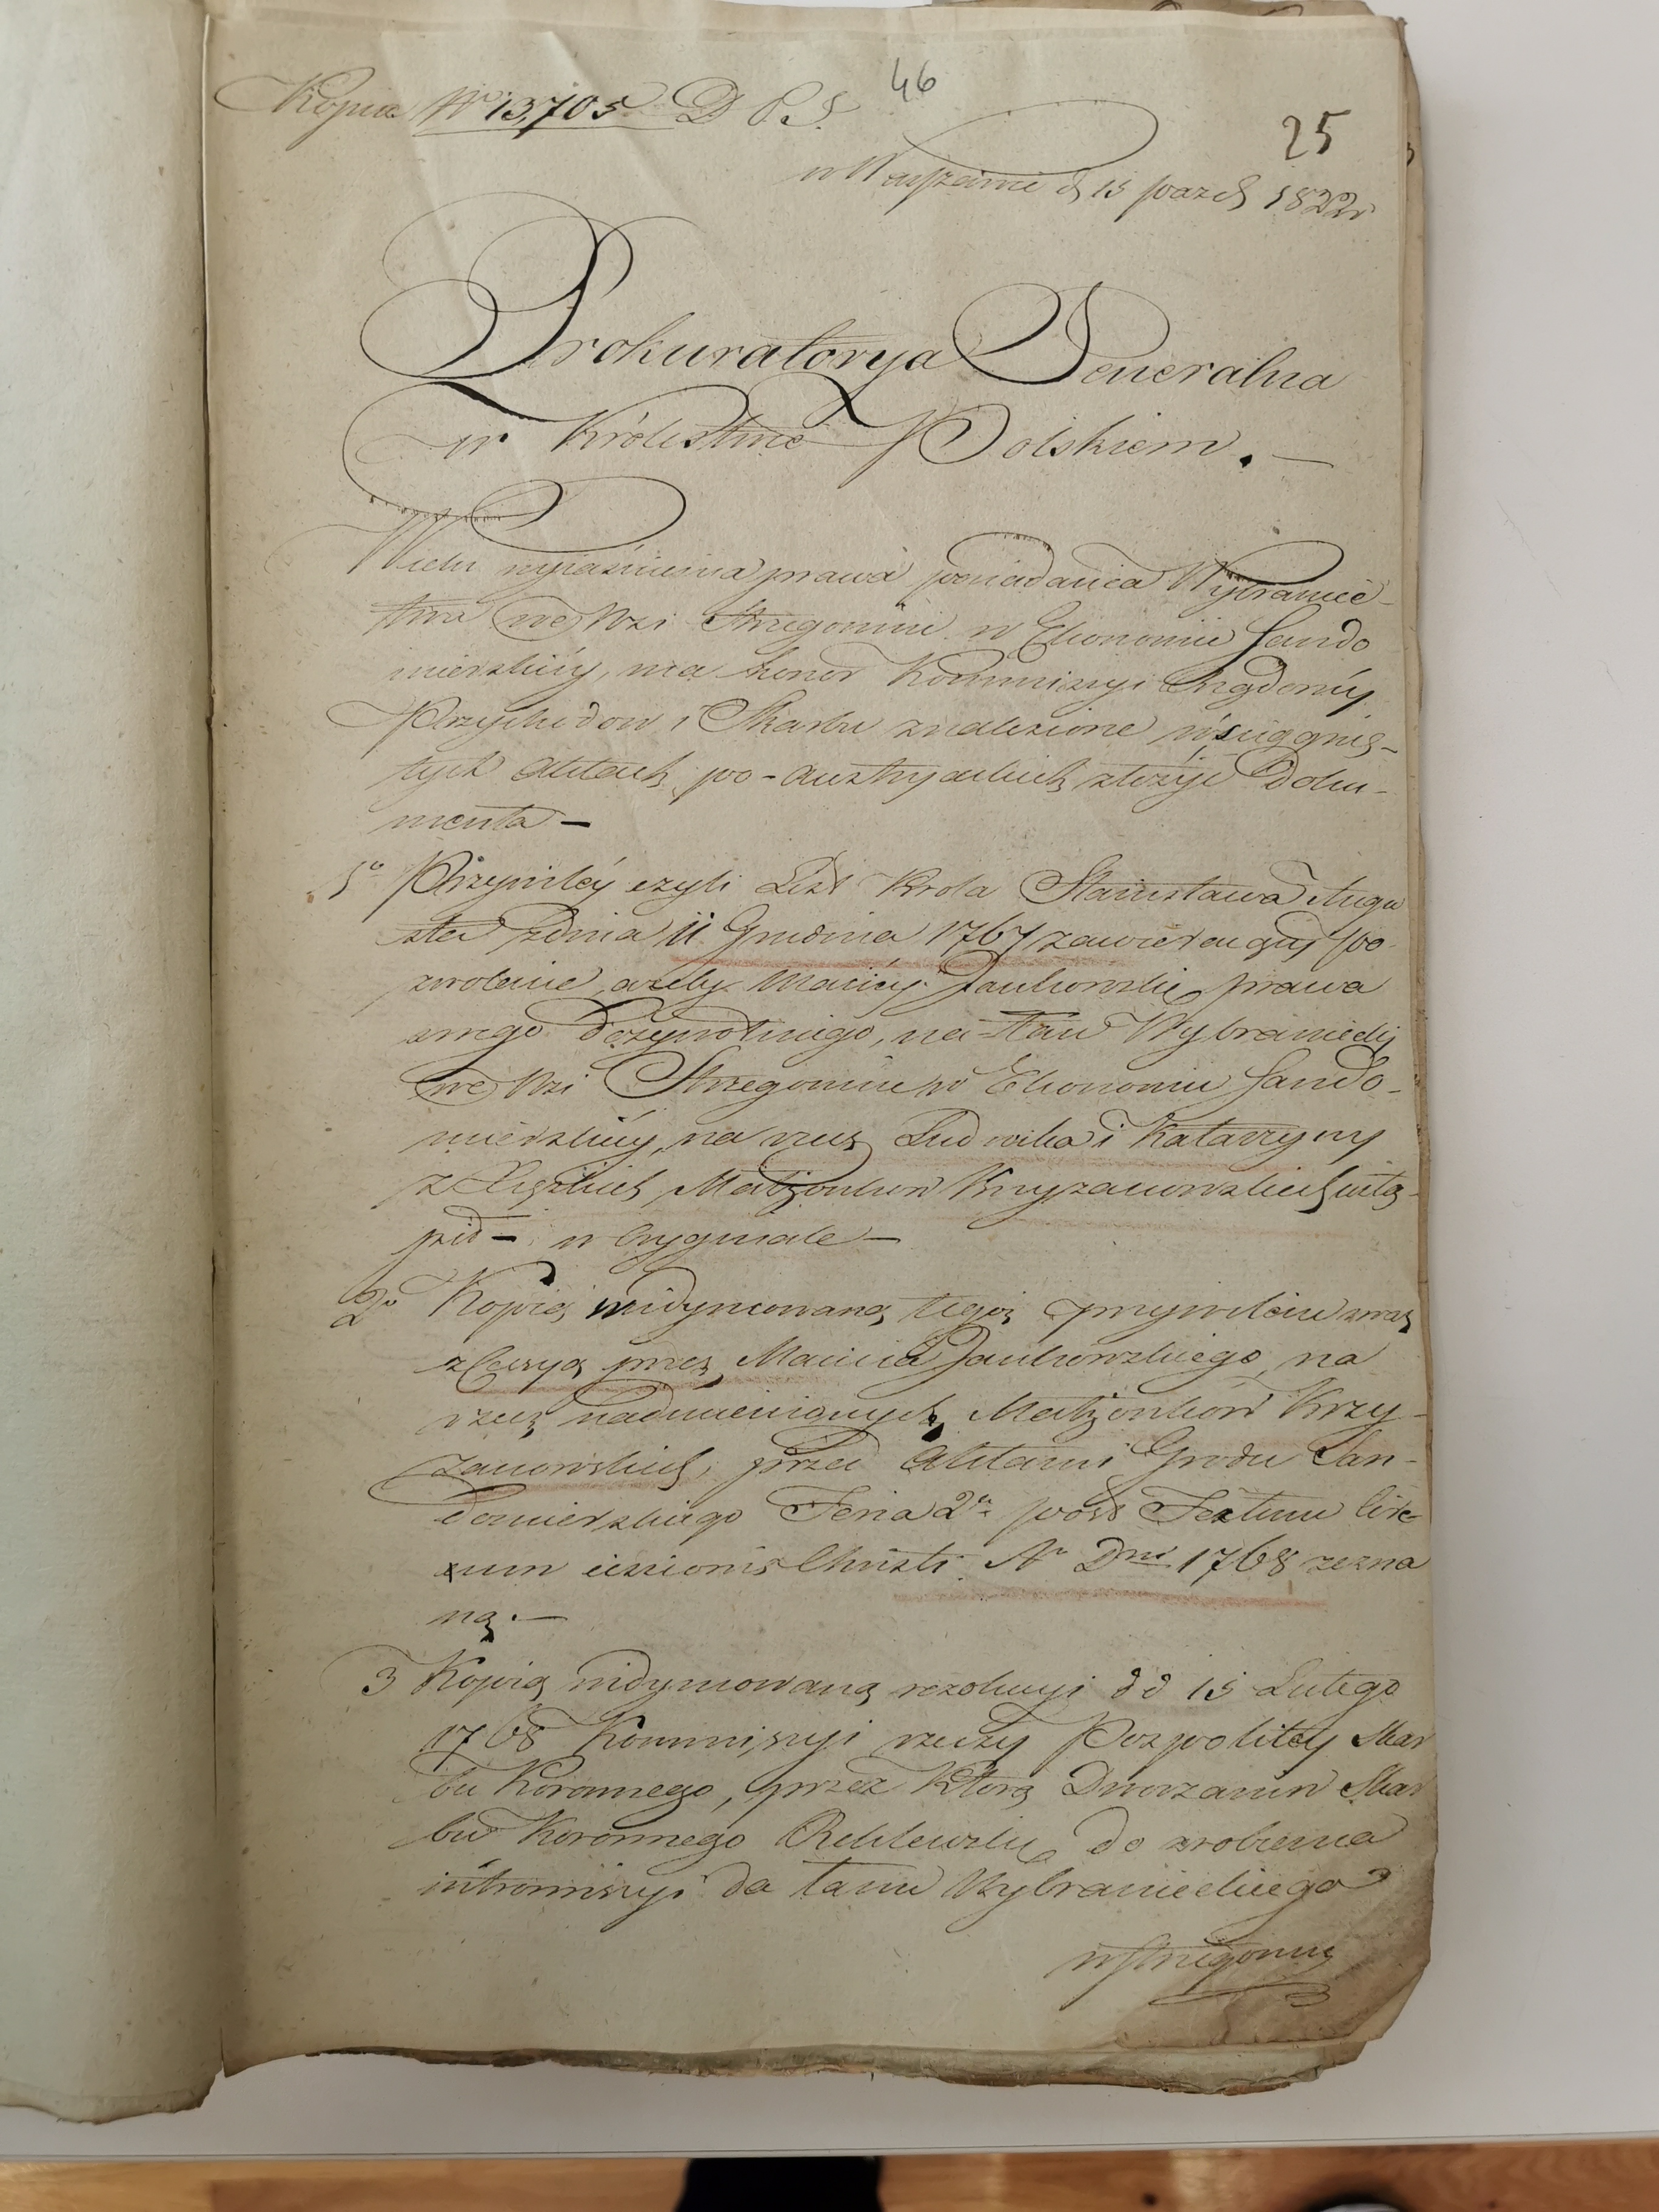 46
Kopia N° 13,705 D P. S.
25
w Warszawie d 15 Pazd 1822r
Prokuratorya Generalna
w Królestwie Polskiem.—
W celu wyiaśnienia prawa posiadania Wybraniec-
twa we Wsi Strzegomiu w Ekonomii Sando
mierskiéy, ma honor Kommissyi Rządowéy
Przychodow i Skarbu znalezione w ściągnię-
tych Aktach po-austryackich złożyć Doku-
menta —
1° Przywiléy czyli List Krola Stanisława Augu
sta z dnia 11 Grudnia 1767 zawieraiący po-
zwolenie, ażeby Maciéy Jankowski prawa
swego dożywotniego, na Łan Wybraniecki
we Wsi Strzegomiu w Ekonomii Sando-
mierskiéy, na rzecz Ludwika i Katarzyny
z Małżonkow Krzyzanowskich ustą-
pił — w Oryginale —
2° Kopią widymowaną tegoż przywileiu wraz
z Cessyą przez Macieia Jankowskiego, na
rzecz nadmienionych Małżonków Krzy-
zanowskich, przed Aktami Grodu San-
domierskiego Feria 2da post Festum Circ
um cisionis Christi A° Dni 1768 zezna
ną.—
3 Kopią widymowaną rezolucyi dd 15 Lutego
1768 Kommissyi rzeczy Pospolitéy Skar
bu Koronnego, przez którą Dworzanin Skar
bu Koronnego do zrobienia
intromissyi do Łanu Wybranieckiego
w Strzegomiu